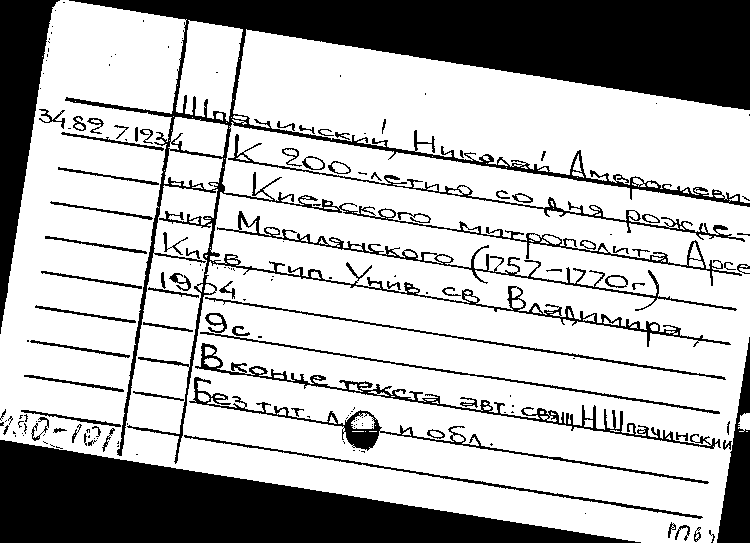 Шпачинский, Николай Амвросиевич
34.82.7.1234
К 200-летию со дня рожде-
ния Киевского митрополита Арсе
ния Могилянского (1757-1770г)
Киев, тип. Унив. св. Владимира,
1904.
9с.
В конце текста авт: свящ. Н Шпачинский
Без тит. л. и обл.
430-101